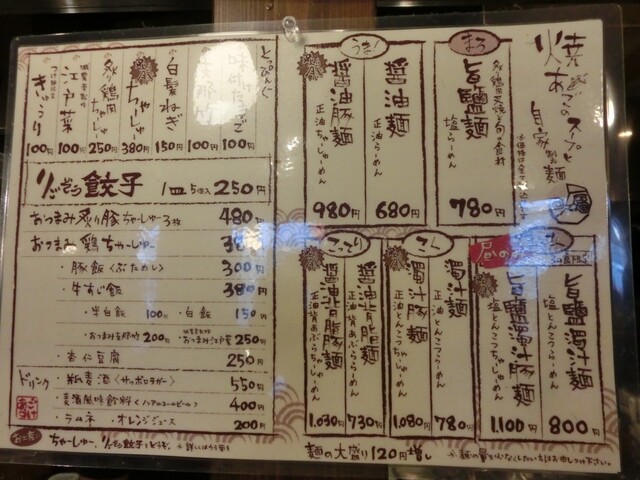 焼あごのスープと
自家製麺
まろ
旨鹽麺
塩らーめん
780円
うまり
醤油麺
正油らーめん
680円
醤油豚麺
正油ちゃーしゅーめん
980円
旨鹽濁汁麺
塩とんこつらーめん
800円
旨鹽濁汁豚麺
塩とんこつちゃーしゅーめん
1,100円
濁汁麺
正油とんこつらーめん
780円
濁汁豚麺
正油とんこつちゃーしゅーめん
1,080円
こってり
醤油背脂麺
正油背あぶららーめん
730円
醤油背脂豚麺
正油背あぶらちゃーしゅーめん
1,030円
麺の大盛り120円増し
とっぴんぐ
100円
100円
白髪ねぎ
150円
ちゃーしゅー
380円
炙り鶏肉ちゃーしゅー
250円
江戸菜
100円
きゅうり
100円
餃子 1皿5個入 250円
おつまみ炙り豚ちゃーしゅー3枚 480円
おつまみ鶏ちゃーしゅー
・豚飯〈ぶためし〉 300円
・牛すじ飯 380円
・半白飯 100円 ・白飯 150円
200円 ・おつまみ江戸菜 250円
・杏仁豆腐 250円
ドリンク ・瓶麦酒〈サッポロラガー〉 550円
・麦酒風味飲料〈ノンアルコールビール〉 400円
・ラムネ ・オレンジジュース 200円